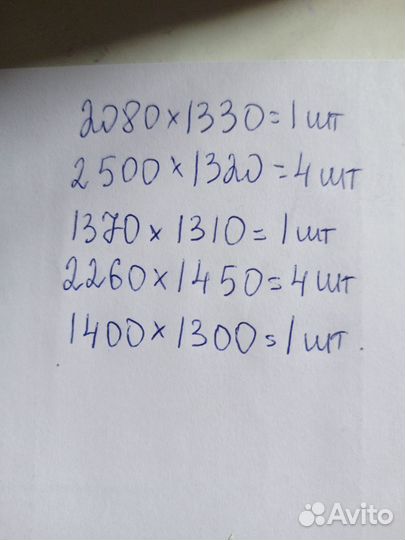 2080×1330=1 шт
2500×1320=4 шт
1370×1310=1 шт
2260×1450=4 шт
1400×1300=1 шт.
Avito